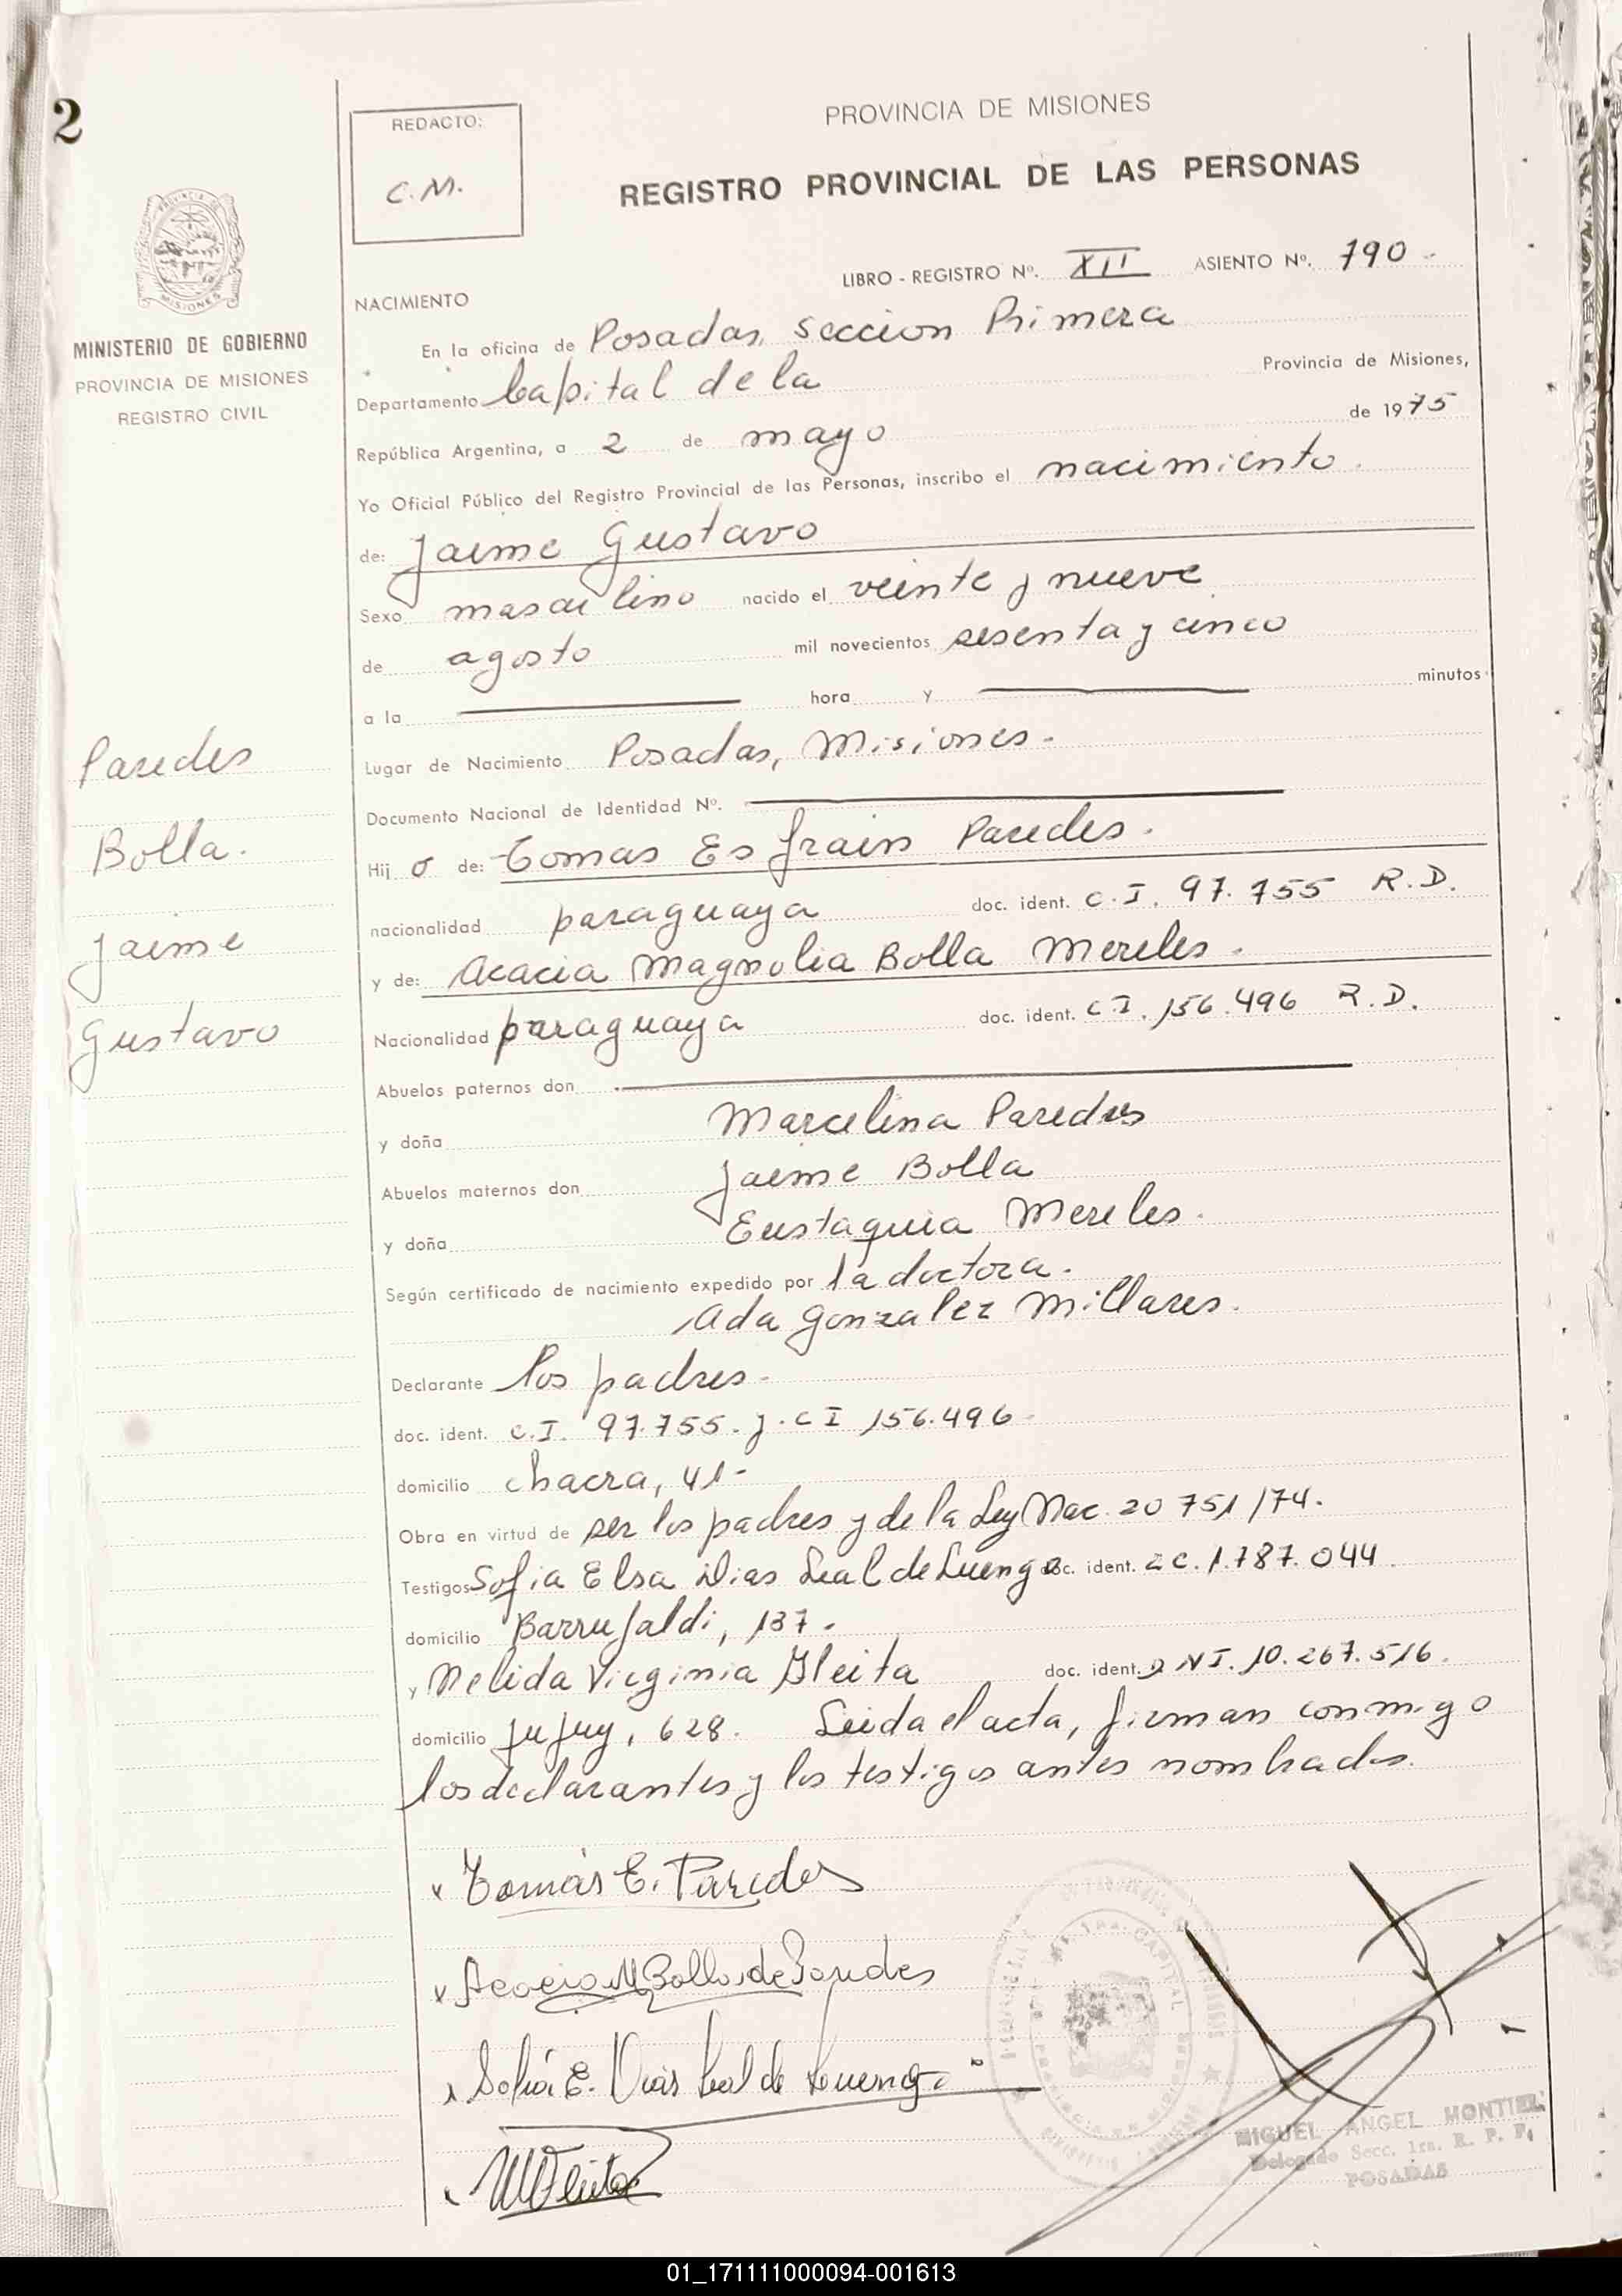 2
REDACTO:
C.M.
PROVINCIA DE MISIONES
REGISTRO PROVINCIAL DE LAS PERSONAS
LIBRO - REGISTRO Nº. XII ASIENTO Nº. 790 -
MINISTERIO DE GOBIERNO
PROVINCIA DE MISIONES
REGISTRO CIVIL
NACIMIENTO
En la oficina de Posadas, Seccion Primera
Departamento Capital de la Provincia de Misiones,
República Argentina, a 2 de mayo de 1975
Yo Oficial Público del Registro Provincial de las Personas, inscribo el nacimiento.
de: Jaime Gustavo
Sexo masculino nacido el veinte y nueve
de agosto mil novecientos sesenta y cinco
a la hora y minutos
Lugar de Nacimiento Posadas, Misiones -
Documento Nacional de Identidad Nº.
Hij o de: Tomas Esfrain Paredes.
nacionalidad paraguaya doc. ident. C.I. 97.755 R.D.
y de: Acacia Magnolia Bolla Mereles.
Nacionalidad paraguaya doc. ident. C.I. 156.496 R.D.
Paredes
Bolla.
Jaime
Gustavo
Abuelos paternos don
y doña Marcelina Paredes
Abuelos maternos don Jaime Bolla
y doña Eustaquia Mereles.
Según certificado de nacimiento expedido por la doctora.
Ada Gonzalez Millares.
Declarante los padres -
doc. ident. C.I. 97.755. y. CI 156.496
domicilio chacra, 41 -
Obra en virtud de ser los padres y de la Ley Nac. 20 751/74.
Testigos Sofia Elsa Dias Leal de Luengo doc. ident. LC. 1.787.044
domicilio Barrufaldi, 137.
y Nelida Virginia Gleita doc. ident. DNI. 10.267.516.
domicilio Jujuy, 628. Leida el acta, firman conmigo
los declarantes y los testigos antes nombrados.
Tomás E. Paredes
Acacia M Bolla de Paredes
Sofía E. Dias Leal de Luengo
MIGUEL ANGEL MONTIEL
Delegado Secc. 1ra. R. P. P.
POSADAS
01_171111000094-001613